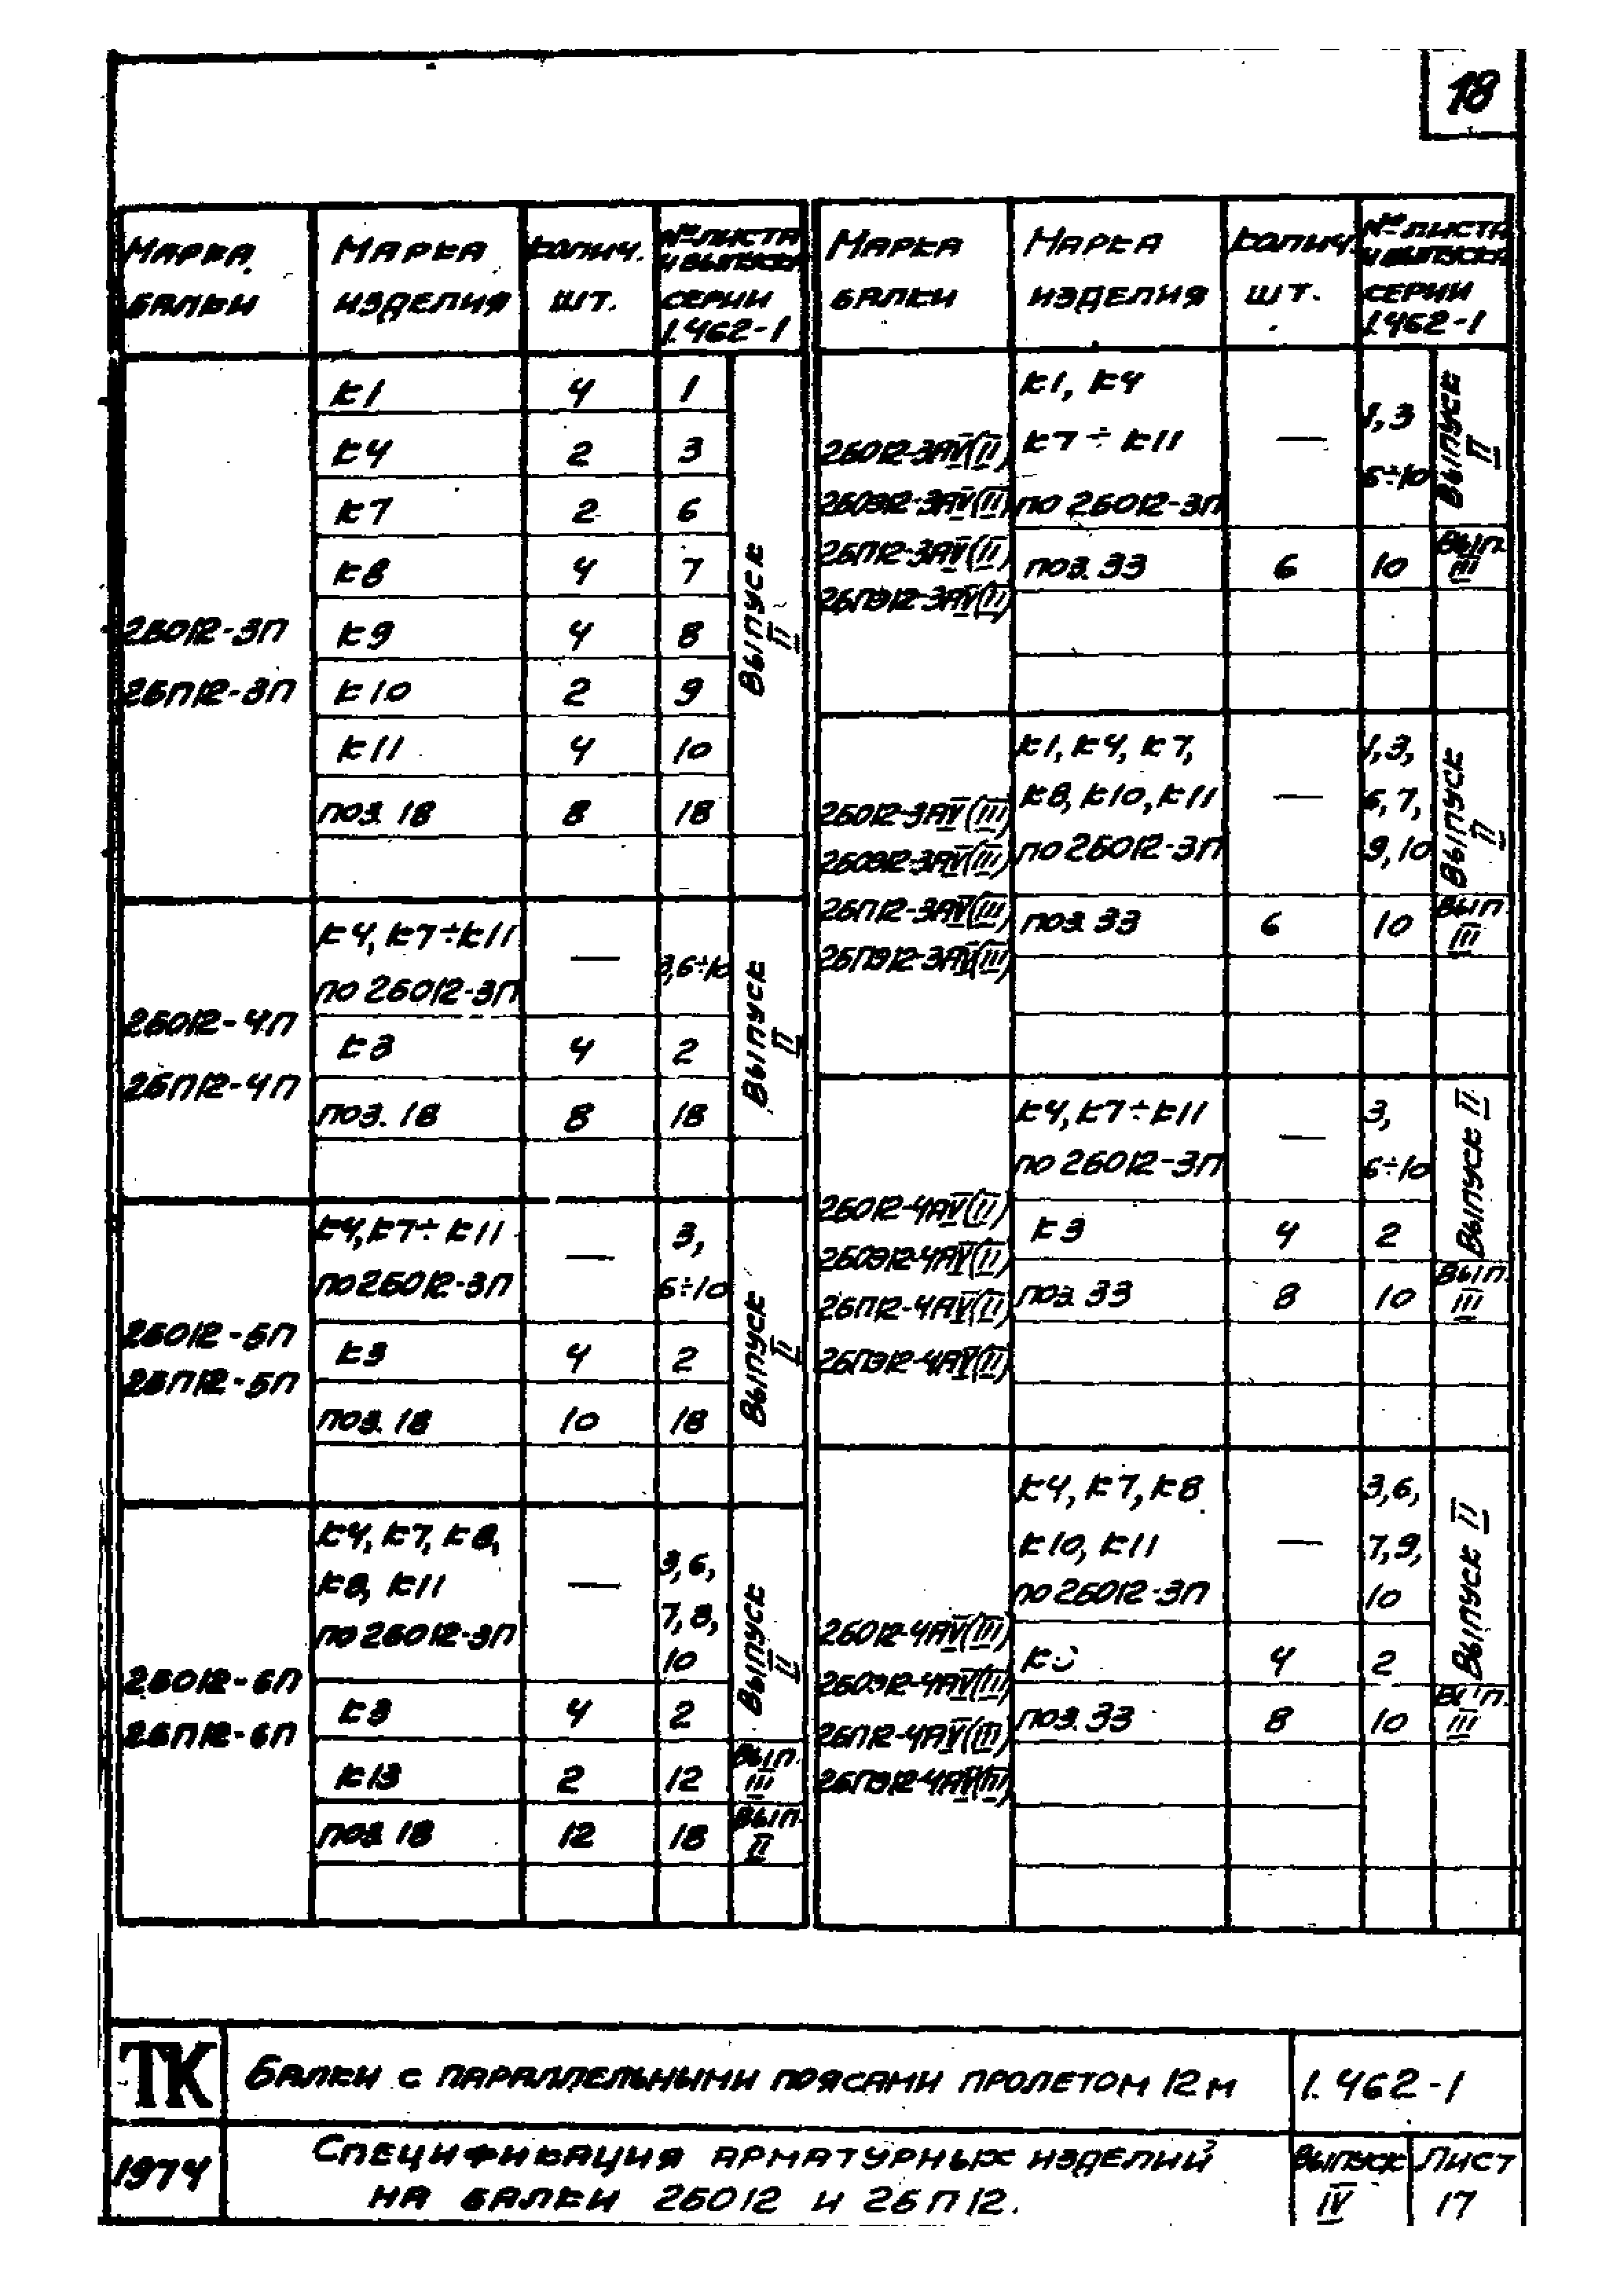 18
Марка балки | Марка изделия | Колич. шт. | №№ листа и выпуска серии 1.462-1
2БО12-3П
2БП12-3П
К1 | 4 | 1
К4 | 2 | 3
К7 | 2 | 6
К8 | 4 | 7
К9 | 4 | 8
К10 | 2 | 9
К11 | 4 | 10
поз. 18 | 8 | 18
Выпуск II
2БО12-4П
2БП12-4П
К4, К7÷К11
по 2БО12-3П | — | 3,6÷10
К3 | 4 | 2
поз. 18 | 8 | 18
Выпуск II
2БО12-5П
2БП12-5П
К4, К7÷К11 | — | 3,
по 2БО12-3П | 6÷10
К3 | 4 | 2
поз. 18 | 10 | 18
Выпуск II
2БО12-6П
2БП12-6П
К4, К7, К8,
К9, К11 | — | 3,6,
по 2БО12-3П | 7,8,
10
Выпуск II
К3 | 4 | 2
К13 | 2 | 12 | Вып. III
поз. 18 | 12 | 18 | Вып. II
Марка балки | Марка изделия | Колич. шт. | №№ листа и выпуска серии 1.462-1
2БО12-3АV(II)
2БОЭ12-3АV(II)
2БП12-3АV(II)
2БПЭ12-3АV(II)
К1, К4
К7÷К11 | — | 1,3
по 2БО12-3П | 6÷10
Выпуск II
поз. 33 | 6 | 10 | Вып. III
2БО12-3АV(III)
2БОЭ12-3АV(III)
2БП12-3АV(III)
2БПЭ12-3АV(III)
К1, К4, К7, | 1,3,
К8, К10, К11 | — | 6,7,
по 2БО12-3П | 9,10
Выпуск II
поз. 33 | 6 | 10 | Вып. III
2БО12-4АV(II)
2БОЭ12-4АV(II)
2БП12-4АV(II)
2БПЭ12-4АV(II)
К4, К7÷К11 | — | 3,
по 2БО12-3П | 6÷10
К3 | 4 | 2
Выпуск II
поз. 33 | 8 | 10 | Вып. III
2БО12-4АV(III)
2БОЭ12-4АV(III)
2БП12-4АV(III)
2БПЭ12-4АV(III)
К4, К7, К8 | 3,6,
К10, К11 | — | 7,9,
по 2БО12-3П | 10
К3 | 4 | 2
Выпуск II
поз. 33 | 8 | 10 | Вып. III
ТК
1974
Балки с параллельными поясами пролетом 12м
1.462-1
Спецификация арматурных изделий
на балки 2БО12 и 2БП12.
Выпуск IV
Лист 17